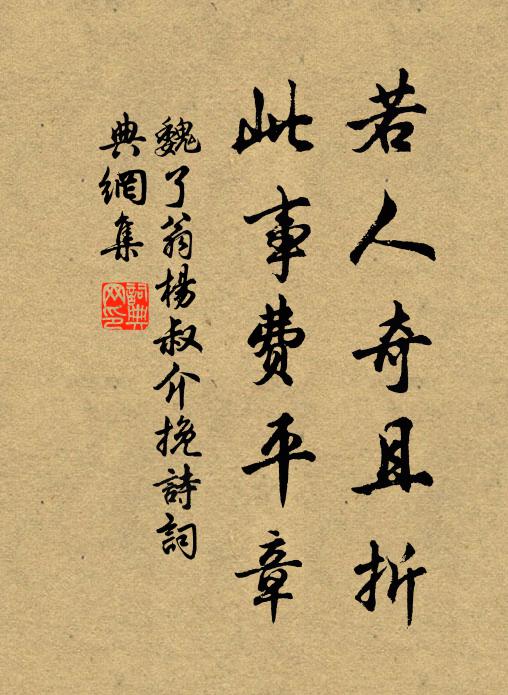 若人奇且折
此事費平章
魏了翁楊叔介挽詩詞
典網集
詞典網印